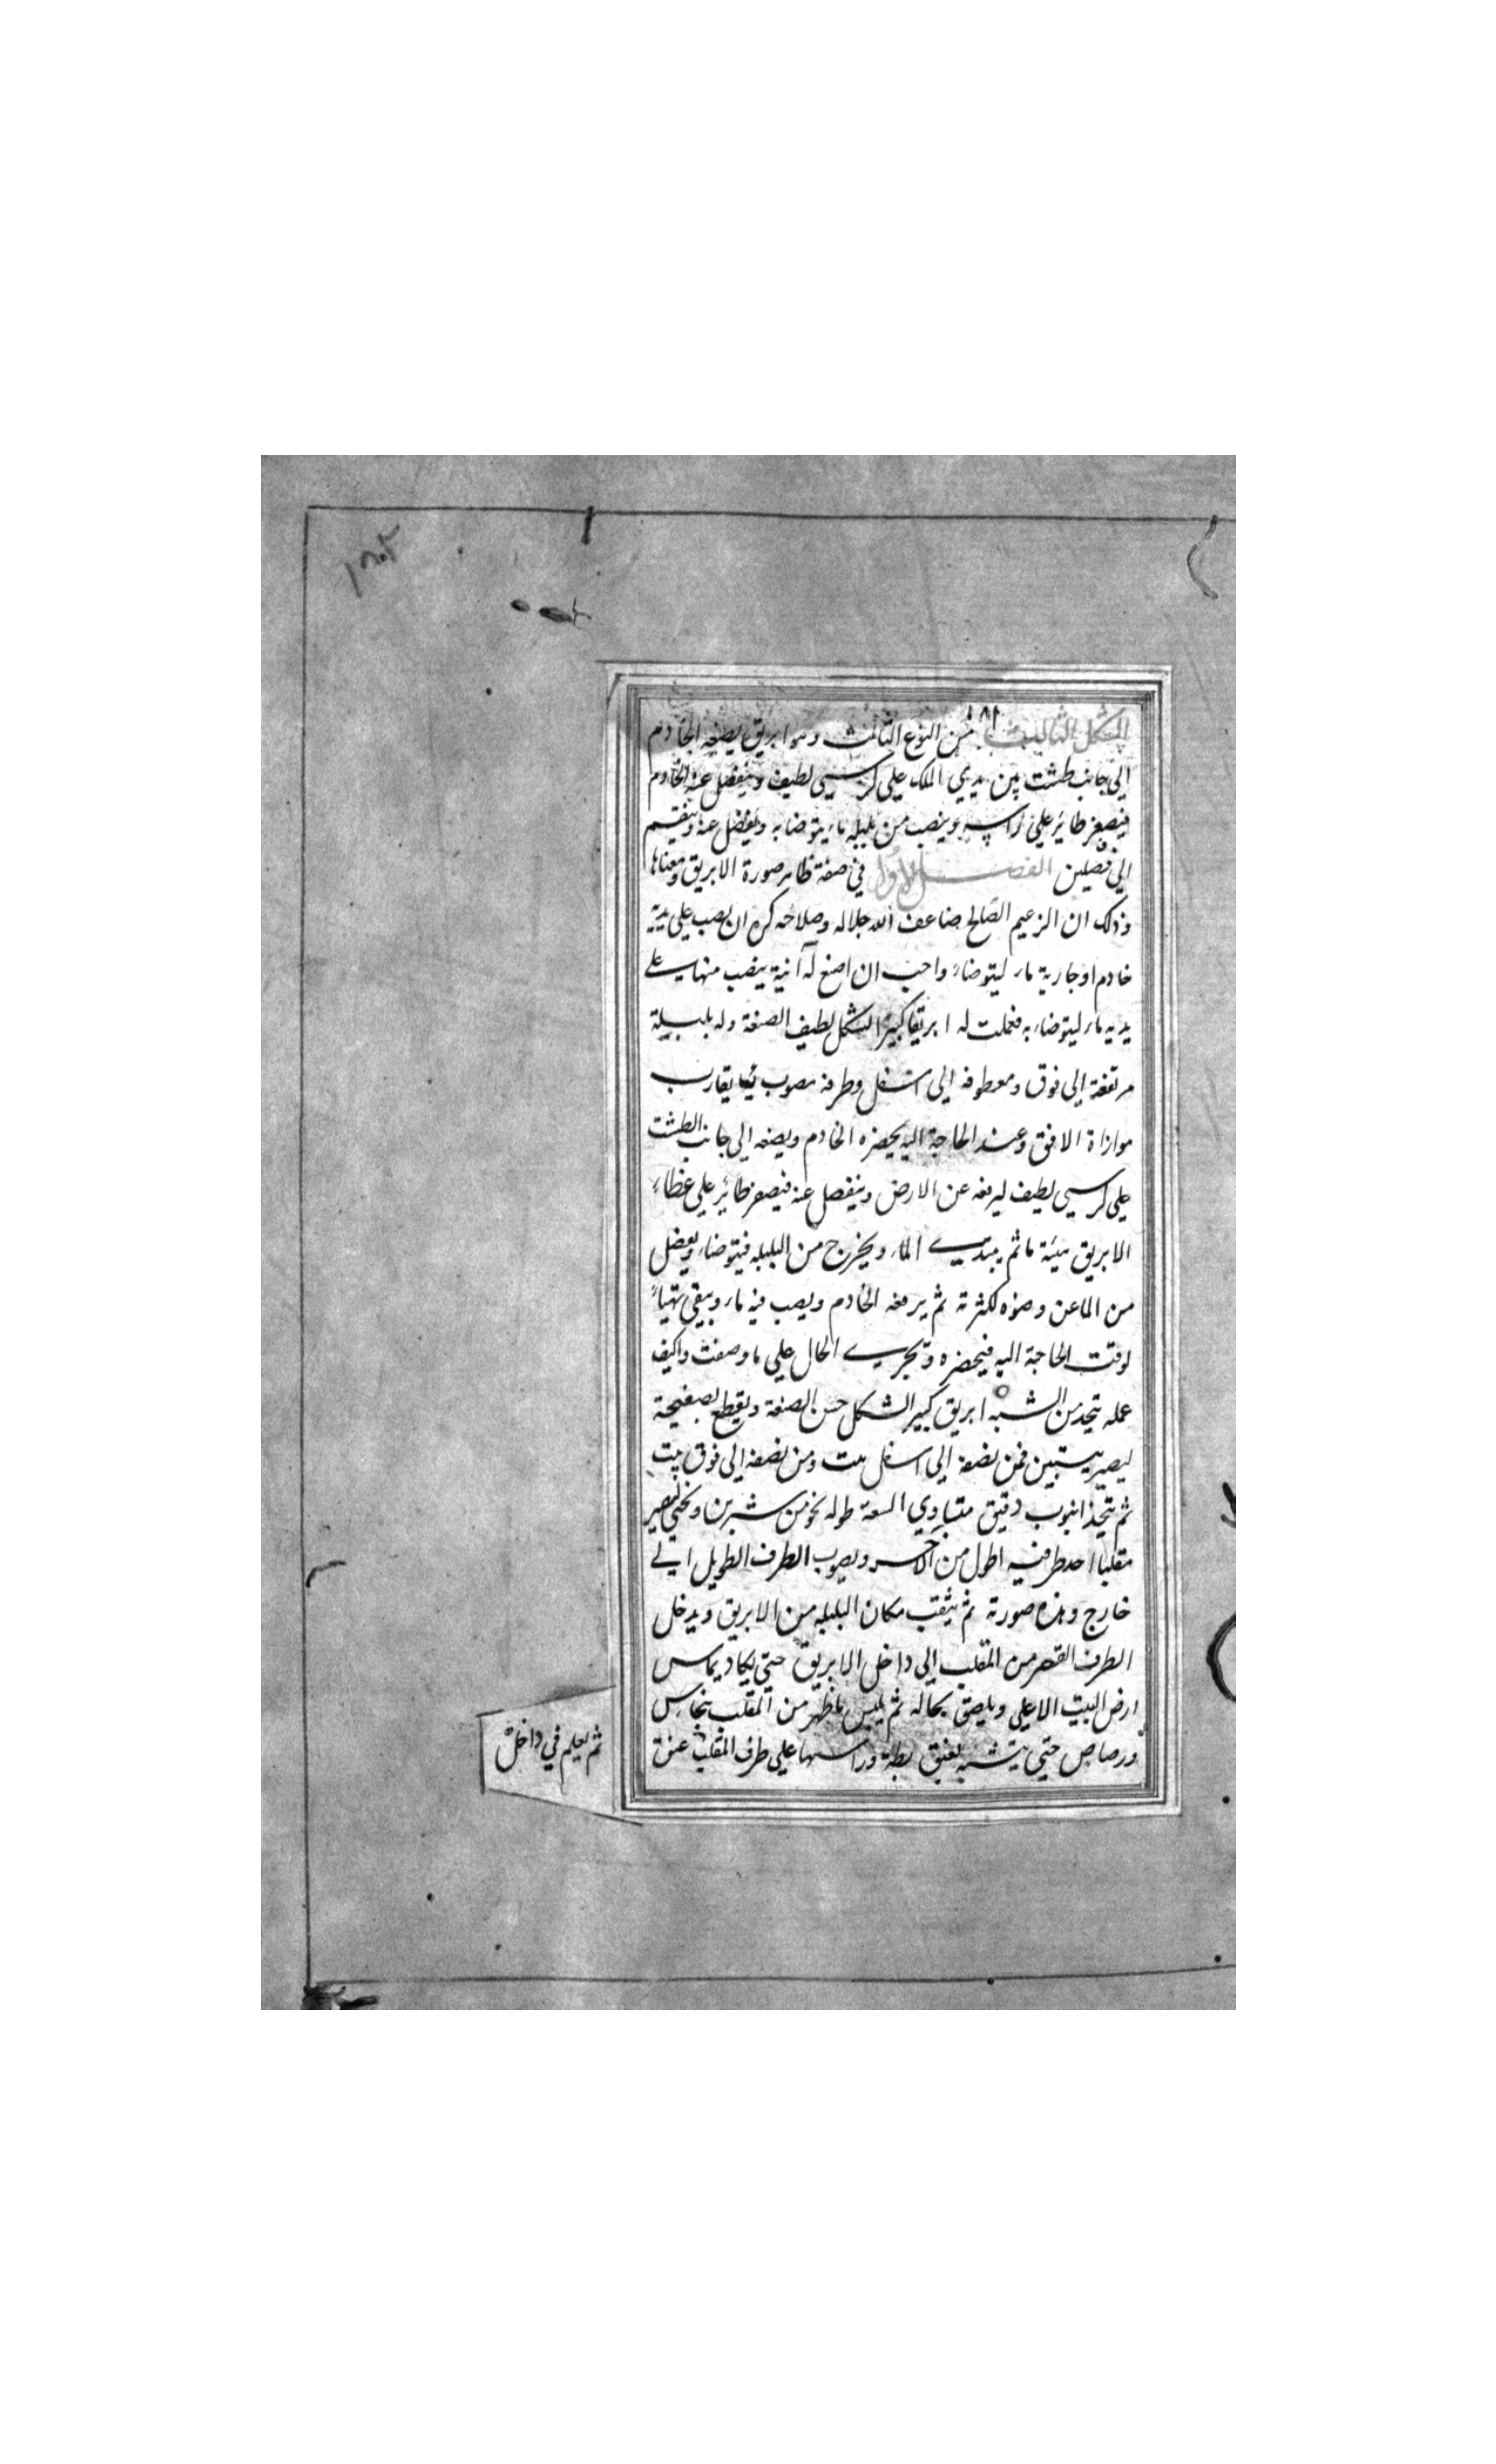 ١٨١
الشكل الثالث من النوع الثالث وهو ابريق يضعه الخادم
الي جانب طشت بين يدي الملك علي كرسي لطيف وينفصل عنه الخادم
فيصفر طائر علي راسه وينصب من بلبله ماء يتوضا به ويفضل عنه وينقسم
الي فصلين الفصل الاول في صفة ظاهر صورة الابريق ومعناها
وذلك ان الزعيم الصالح ضاعف الله جلاله وصلاحه كره ان يصب علي يديه
خادم او جارية ماء ليتوضاء واحب ان اصنع له آنية ينصب منها علي
يديه ماء ليتوضاء به فعملت له ابريقا كبير الشكل لطيف الصنعة وله بلبلة
مرتفعة الي فوق ومعطوفه الي اسفل وطرفه مصوب يقارب
موازاة الافق وعند الحاجة اليه يحضره الخادم ويضعه الي جانب الطشت
علي كرسي لطيف ليرفعه عن الارض وينفصل عنه فيصفر طائر علي غطاء
الابريق هيئة ما ثم يبتدي الماء ويخرج من البلبله فيتوضاء ويفضل
من الماء عن وضوه لكثرته ثم يرفعه الخادم ويصب فيه ماء ويبقي مهيأ
لوقت الحاجة اليه فيحضره وتجري الحال علي ما وصفت واكيف
عمله يتخذ من الشبه ابريق كبير الشكل حسن الصنعة ويقطع بصفيحة
ليصير بيتين فمن نصفه الي اسفل بيت ومن نصفه الي فوق بيت
ثم يتخذ انبوب دقيق متساوي السعة طوله نحو من شبرين ويحني ليصير
مقلبا احد طرفيه اطول من الآخر ويصوب الطرف الطويل الي
خارج وهذه صورته ثم يثقب مكان البلبله من الابريق ويدخل
الطرف القصير من المقلب الي داخل الابريق حتي يكاد يماس
ارض البيت الاعلي ويلصق بحاله ثم يلبس ما ظهر من المقلب بنحاس
ورصاص حتي يتشبه بعنق بطة وراسها علي طرف المقلب عنق
ثم يعلم في داخل